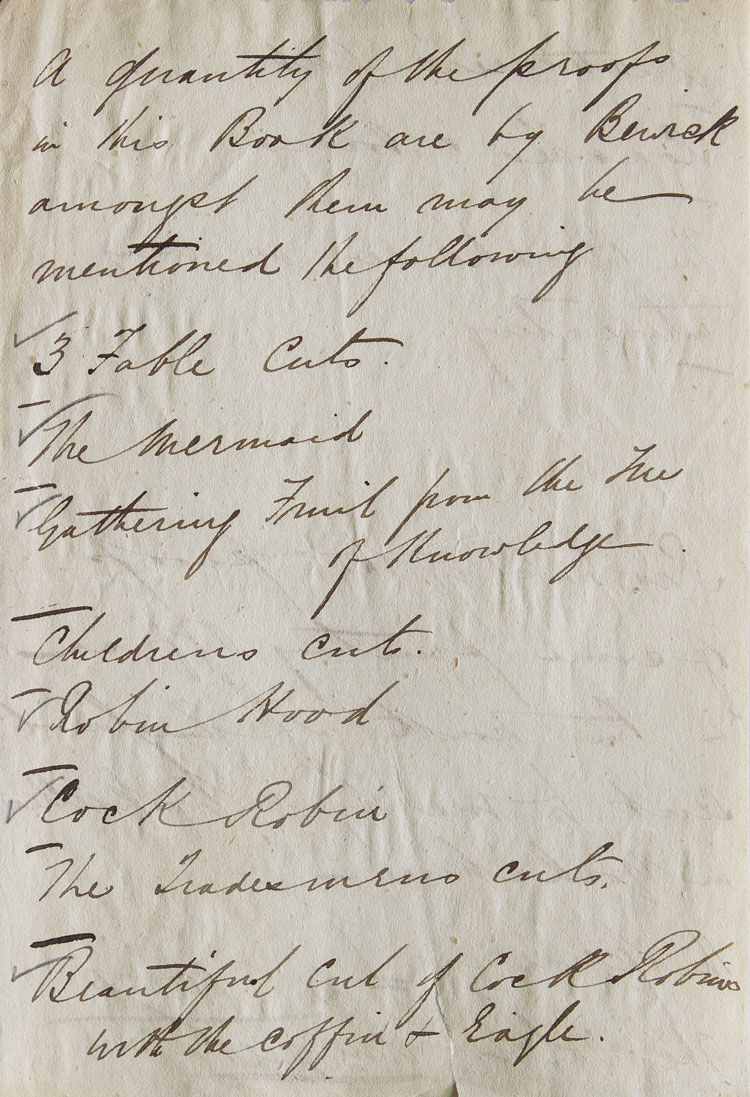 A quantity of the proofs
in this Book are by Bewick
amongst them may be
mentioned the following
3 Fable Cuts.
The Mermaid
Gathering Fruit from the Tree
of Knowledge.
Childrens cuts.
Robin Hood
Cock Robin
The Tradesmens cuts.
Beautiful cut of Cock Robins
with the coffin & Eagle.